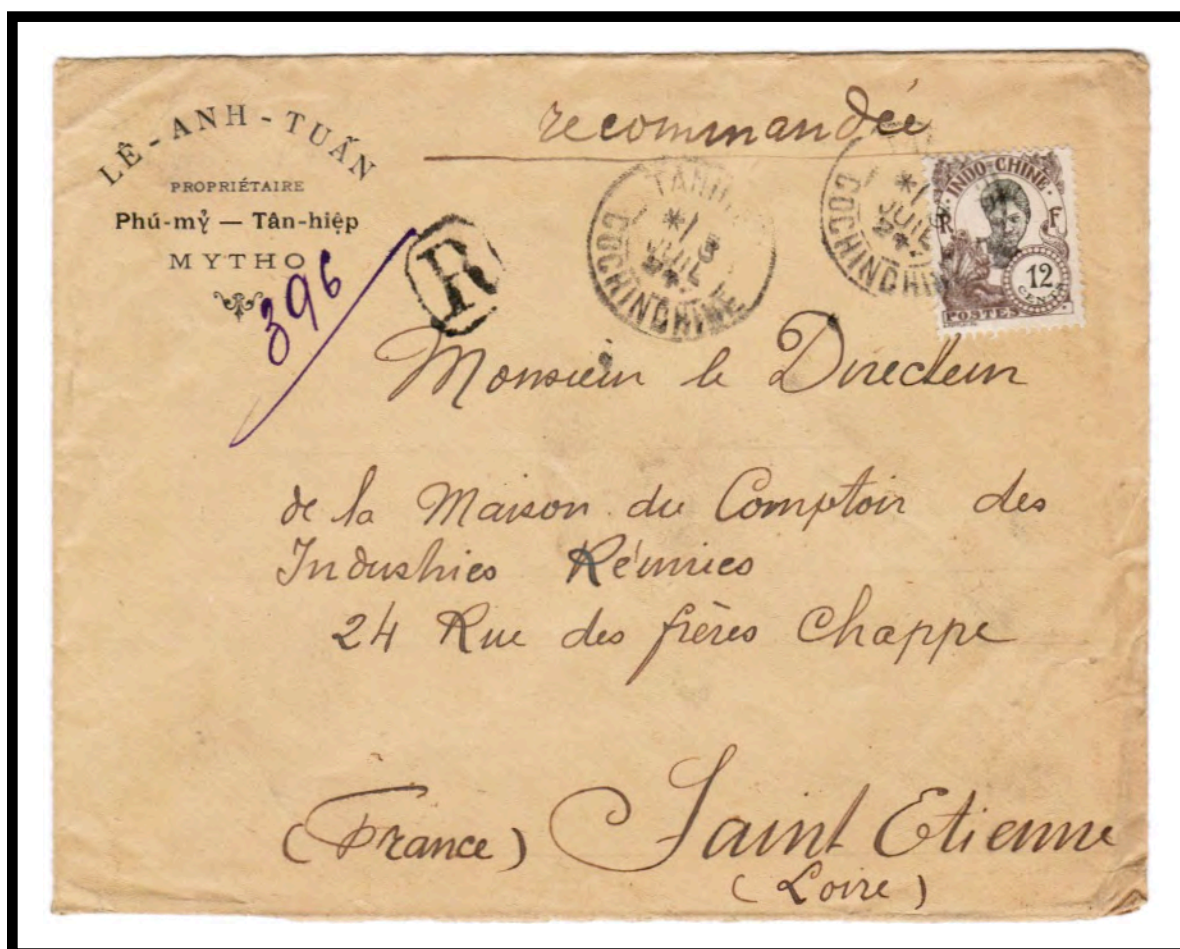 LÊ-ANH-TUẤN
PROPRIÉTAIRE
Phú-mỹ — Tân-hiệp
MYTHO
396
R
recommandée
COCHINCHINE
JUIL
COCHINCHINE
JUIL
INDO-CHINE
R F
12
CENTS
POSTES
Monsieur le Directeur
de la Maison du Comptoir des
Industries Réunies
24 Rue des frères Chappe
(France) Saint Etienne
(Loire)